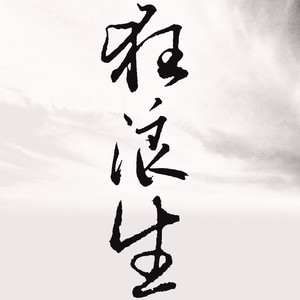 狂浪生